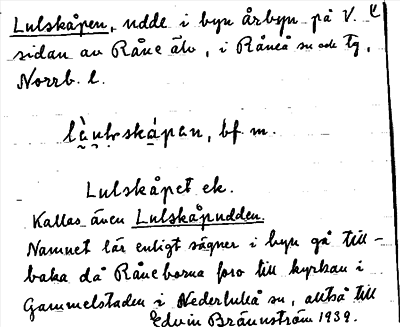 Lulskåpen, udde i byn Årbyn på V.
sidan av Råne älv, i Råneå sn och tg,
Norrb. l.
bf. m.
Lulskåpet ek.
Kallas även Lulskåpudden.
Namnet lär enligt sägner i byn gå till-
baka då Råneborna foro till kyrkan i
Gammelstaden i Nederluleå sn, alltså till
Edvin Brännström 1939.